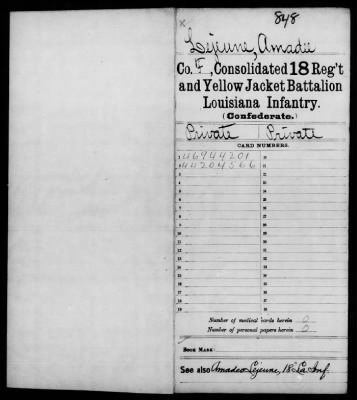 x
848
Lejeune, Amadee
Co. F, Consolidated 18 Reg't
and Yellow Jacket Battalion
Louisiana Infantry.
(Confederate.)
Private | Private
CARD NUMBERS.
1 46944201 20
2 44204566 21
3 22
4 23
5 24
6 25
7 26
8 27
9 28
10 29
11 30
12 31
13 32
14 33
15 34
16 35
17 36
18 37
19 38
Number of medical cards herein 0
Number of personal papers herein 0
BOOK MARK:
See also Amadeo Lejeune, 18" La Inf.